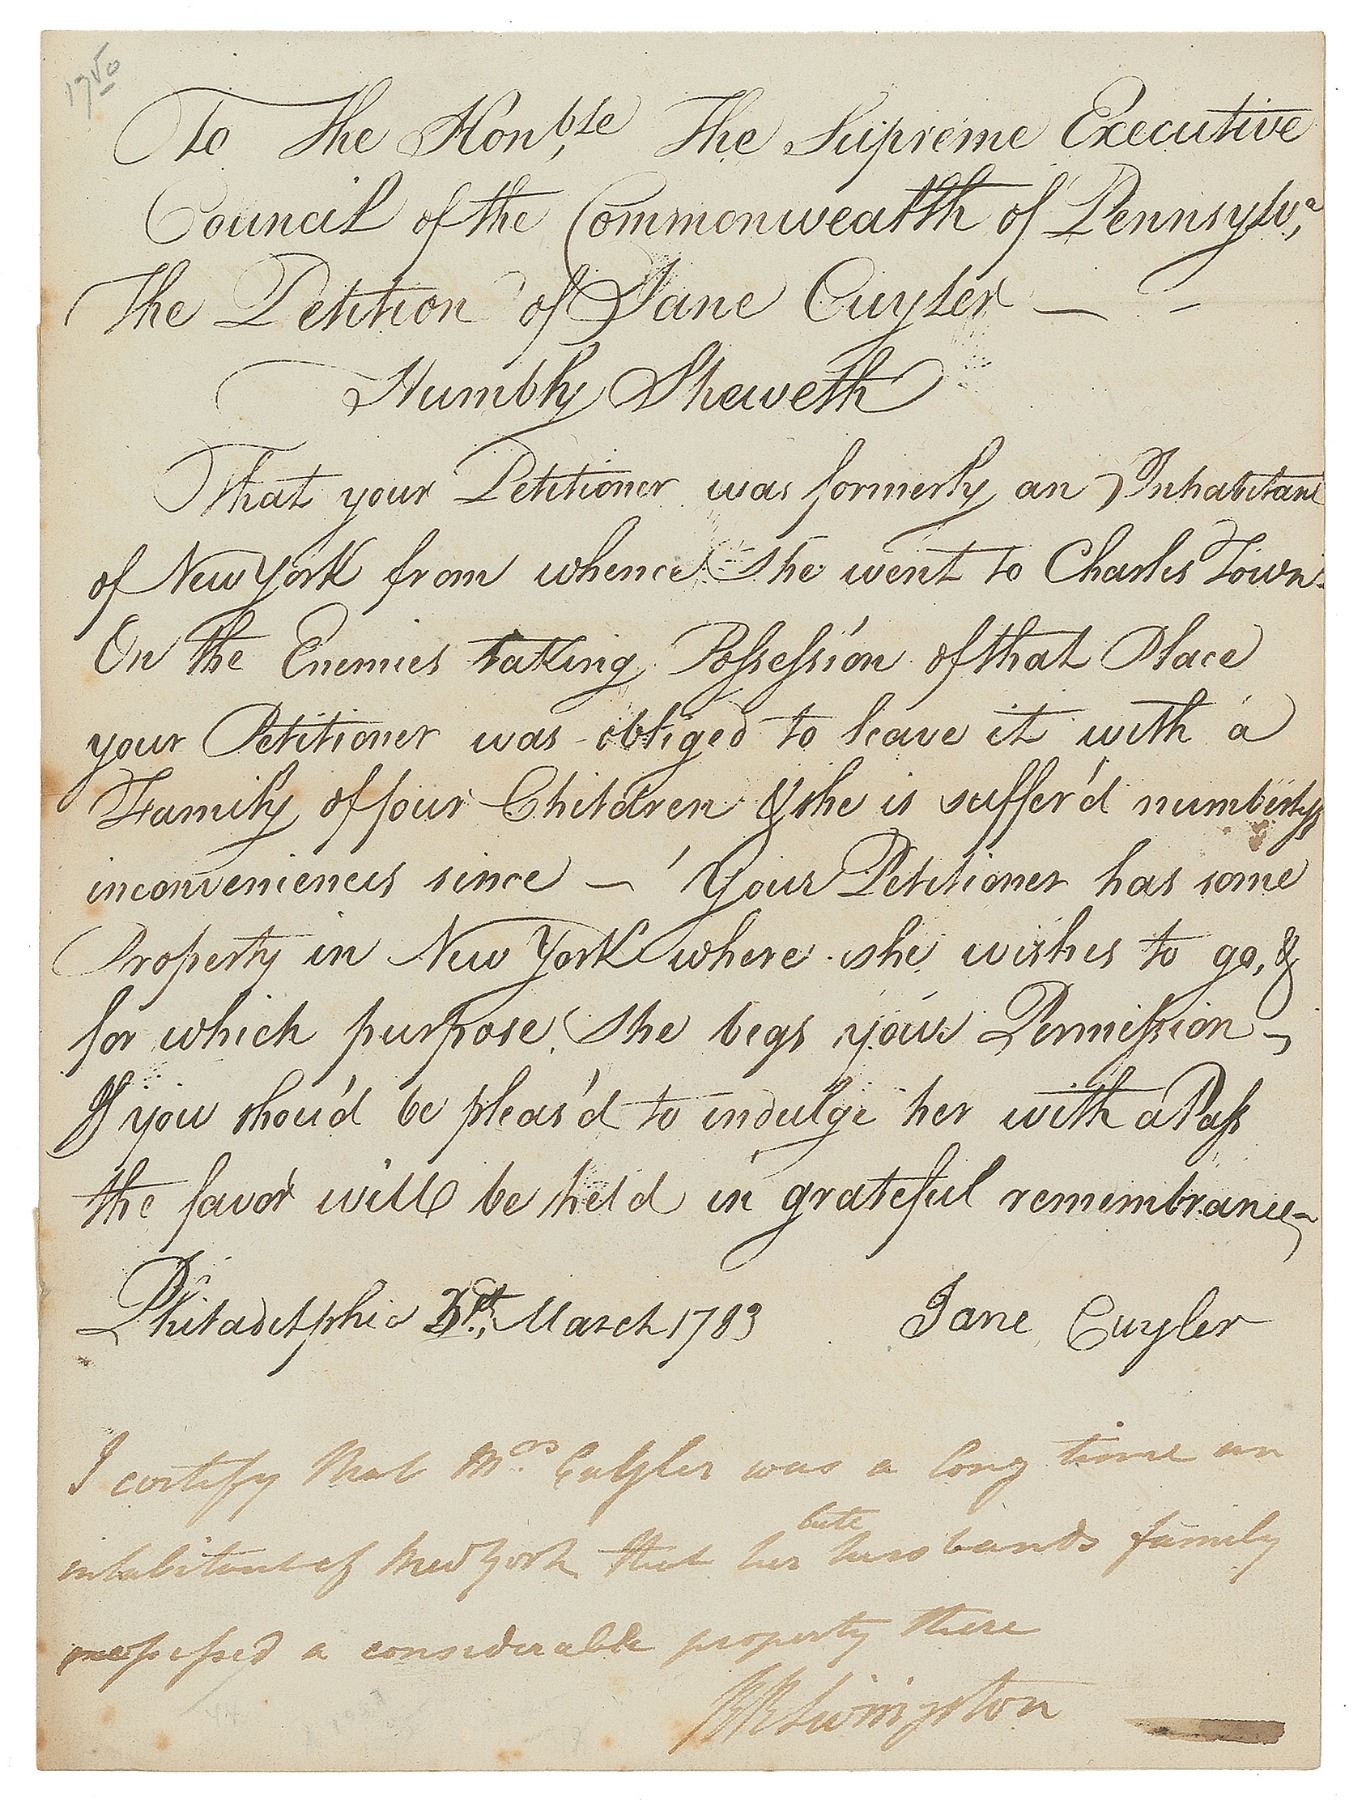 1750
To The Honble, The Supreme Executive
Council of the Commonwealth of Pennsylva,
The Petition of Jane Cuyler — -
Humbly Sheweth
That your Petitioner was formerly an Inhabitant
of New York from whence She went to Charles Town.
On the Enemies taking Possession of that Place
your Petitioner was obliged to leave it with a
Family of four Children & she is suffer'd numberless
inconveniences since — Your Petitioner has some
Property in New York where she wishes to go, &
for which purpose She begs your Permission -
If you shou'd be pleas'd to indulge her with a Pass
the favor will be held in grateful remembrance
Philadelphia March 1783 Jane Cuyler
I certify that Mrs Cuyler was a long time an
inhabitant of New York that her late husbands family
possessed a considerable property there
RRLivingston